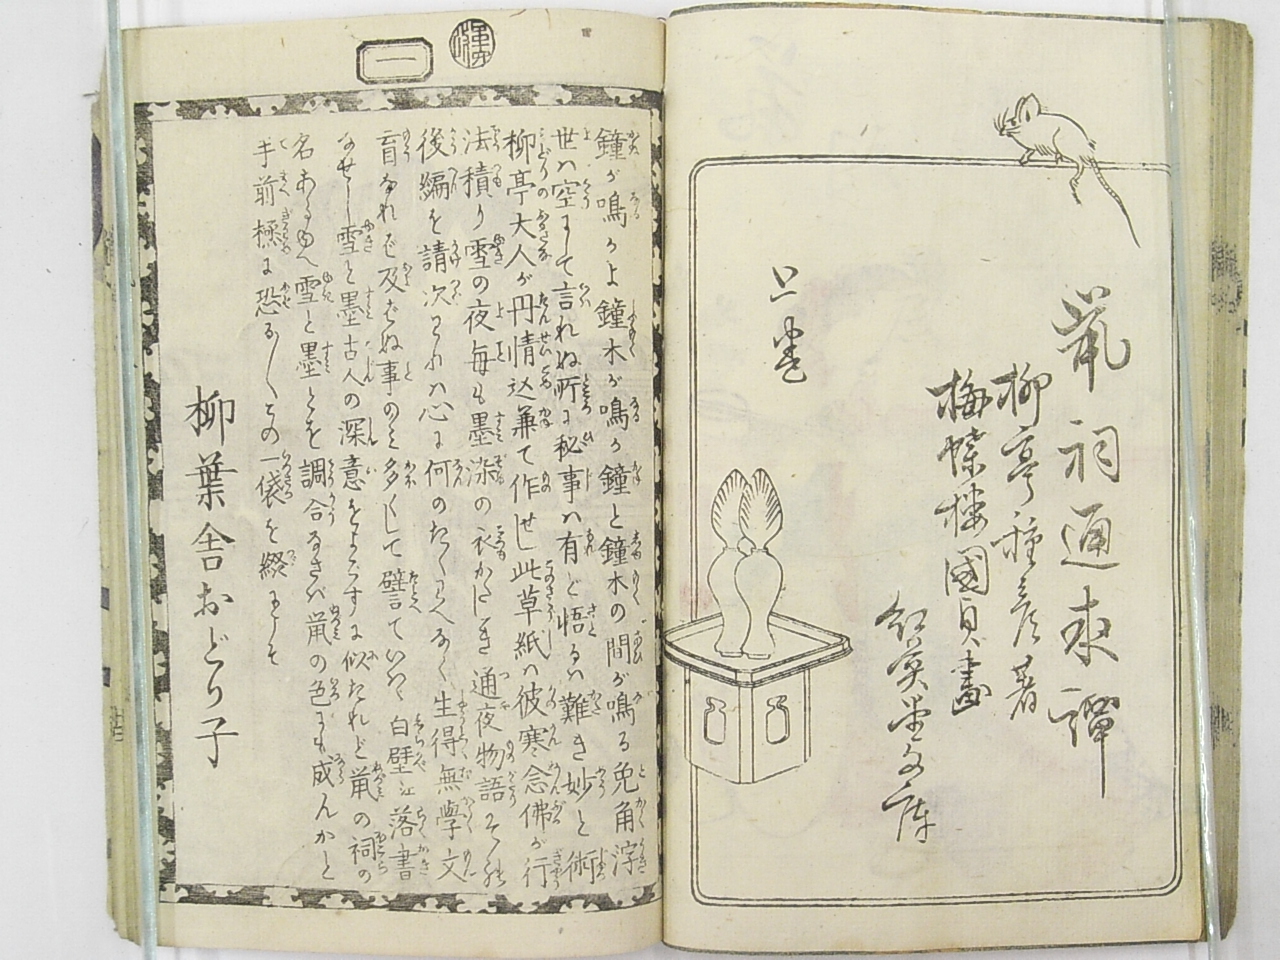 鼠祠通夜譚
柳亭種彦著
梅蝶楼國貞畫
紅英堂文庫
上巻
一
鐘が鳴かよ鐘木が鳴か鐘と鐘木の間が鳴る兎角浮
世は空にして言れぬ所に秘事は有ど悟るは難き妙と術
柳亭大人が丹情込兼て作せし此草紙は彼寒念佛が行
法積り雪の夜毎も墨染の衣かたしき通夜物語その
後編を請次
心に何のたくらべなく生得無學文
盲なれば及ばぬ事のみ多くして譬ていはゞ白壁に落書
なせし雪と墨古人の深意をよごすに似たれど鼠の祠の
名あるゆへ雪と墨とを調合なさば鼠の色にも成んかと
手前極に恐る〳〵ちの一袋を綴
柳葉舎おどり子